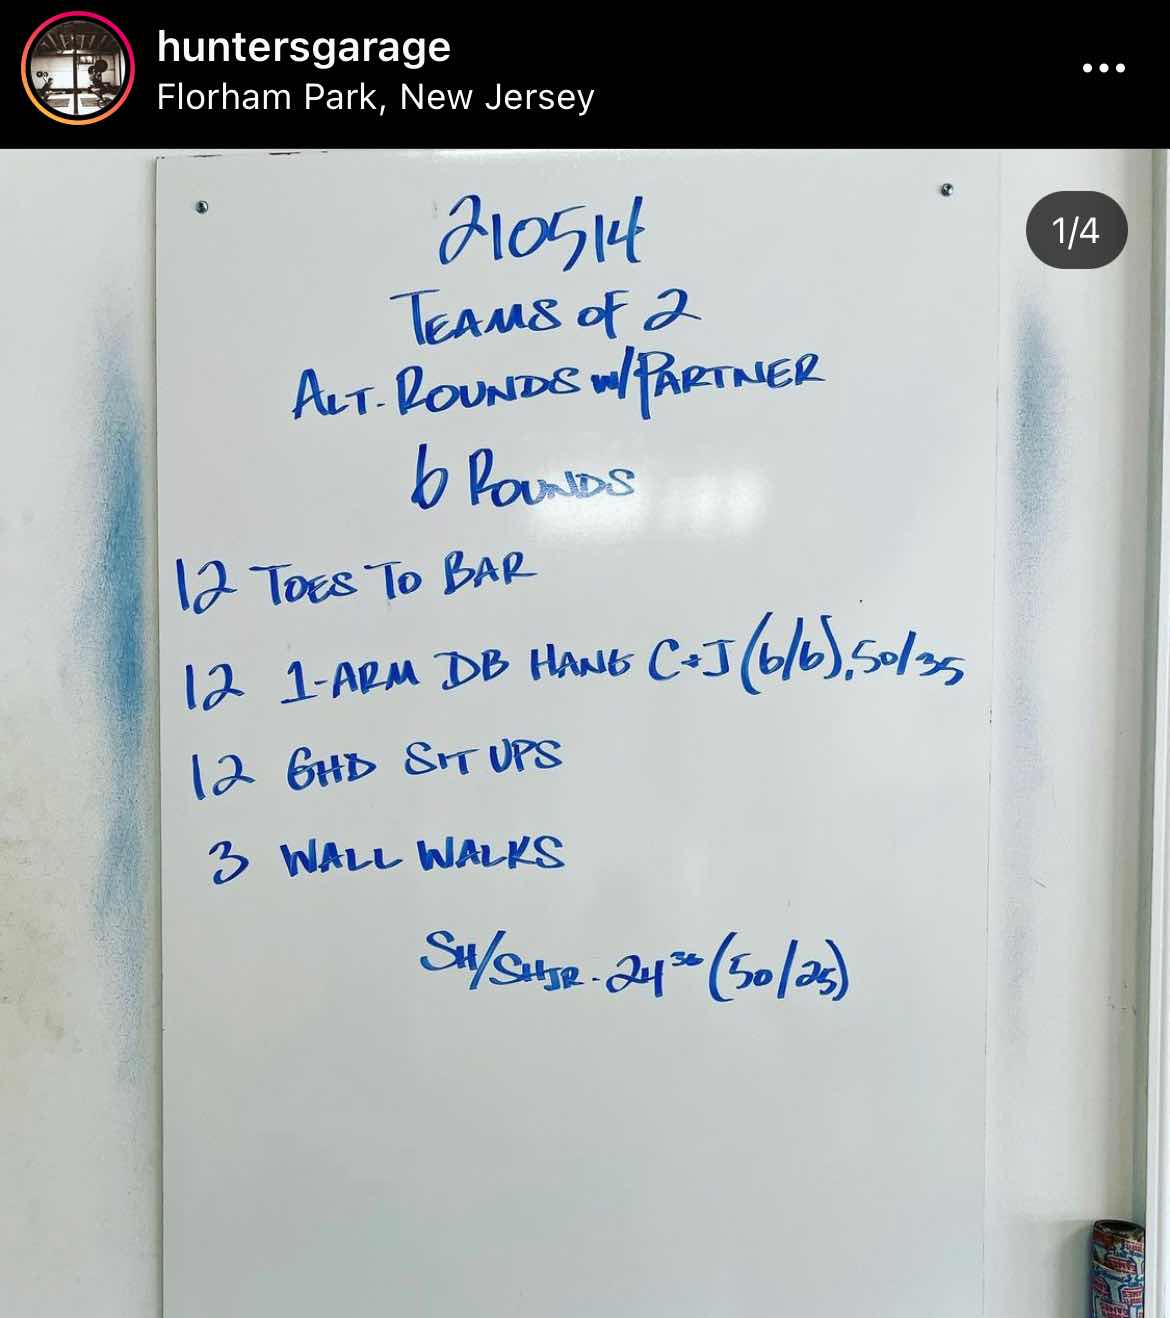 huntersgarage
Florham Park, New Jersey
1/4
210514
TEAMS OF 2
ALT. ROUNDS W/PARTNER
6 ROUNDS
12 TOES TO BAR
12 1-ARM DB HANG C+J (6/6), 50/35
12 GHD SIT UPS
3 WALL WALKS
SH/SHJR. 24³⁶ (50/25)